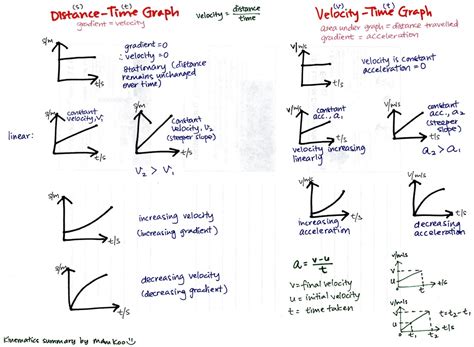 (s) (t)
Distance-Time Graph
gradient = velocity
velocity = distance
time
(v) (t)
Velocity-Time Graph
area under graph = distance travelled
gradient = acceleration
s/m
t/s
gradient = 0
∴ velocity = 0
stationary (distance
remains unchanged
over time)
v/m/s
t/s
velocity is constant
acceleration = 0
linear:
s/m
t/s
constant
velocity, v₁
s/m
t/s
constant
velocity, v₂
(steeper
slope)
v₂ > v₁
v/m/s
t/s
constant
acc., a₁
velocity increasing
linearly
v/m/s
t/s
constant
acc., a₂
(steeper
slope)
a₂ > a₁
s/m
t/s
increasing velocity
(increasing gradient)
v/m/s
t/s
increasing
acceleration
v/m/s
t/s
decreasing
acceleration
s/m
t/s
decreasing velocity
(decreasing gradient)
a = v-u
t
v = final velocity
u = initial velocity
t = time taken
v/m/s
v
u
t
t/s
v/m/s
v
u
t₁
t₂
t/s
t = t₂ - t₁
Kinematics summary by mdm Koo